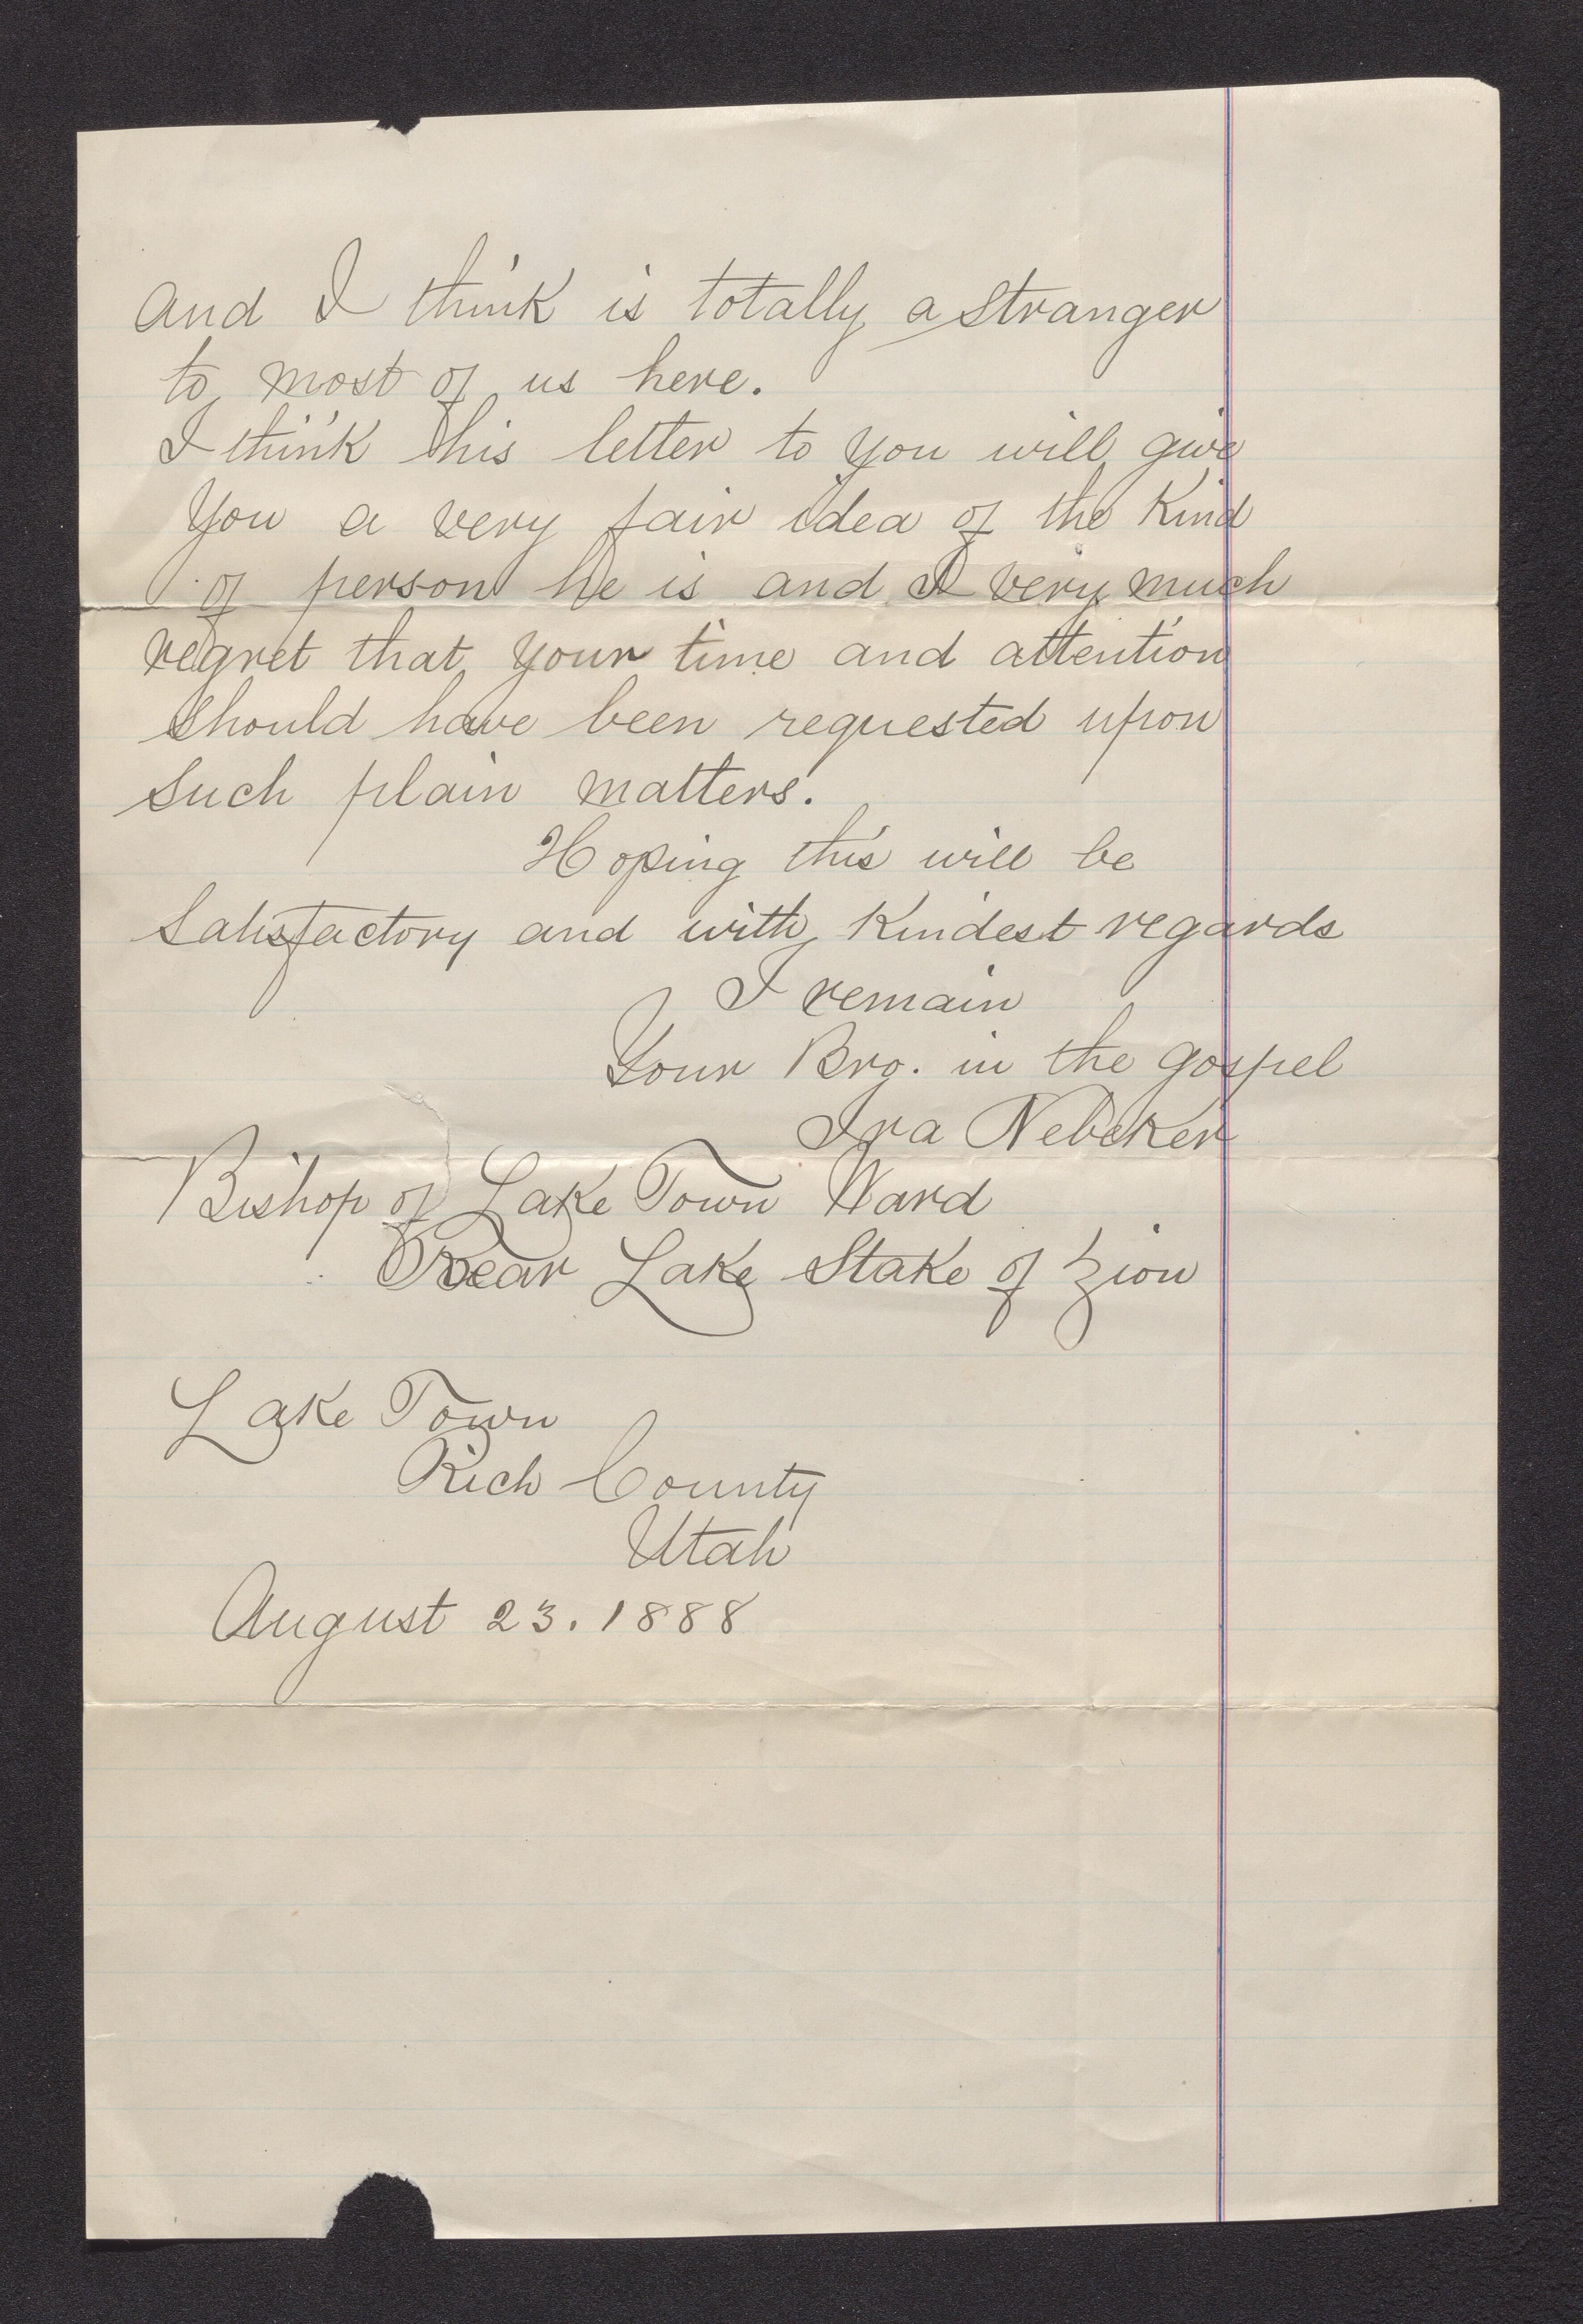 and I think is totally a stranger
to most of us here.
I think this letter to you will give
you a very fair idea of the kind
of person he is and I very much
regret that your time and attention
should have been requested upon
such plain matters.
Hoping this will be
satisfactory and with kindest regards
I remain
Your Bro. in the gospel
Ira Nebeker
Bishop of Lake Town Ward
Bear Lake Stake of Zion
Lake Town
Rich County
Utah
August 23. 1888